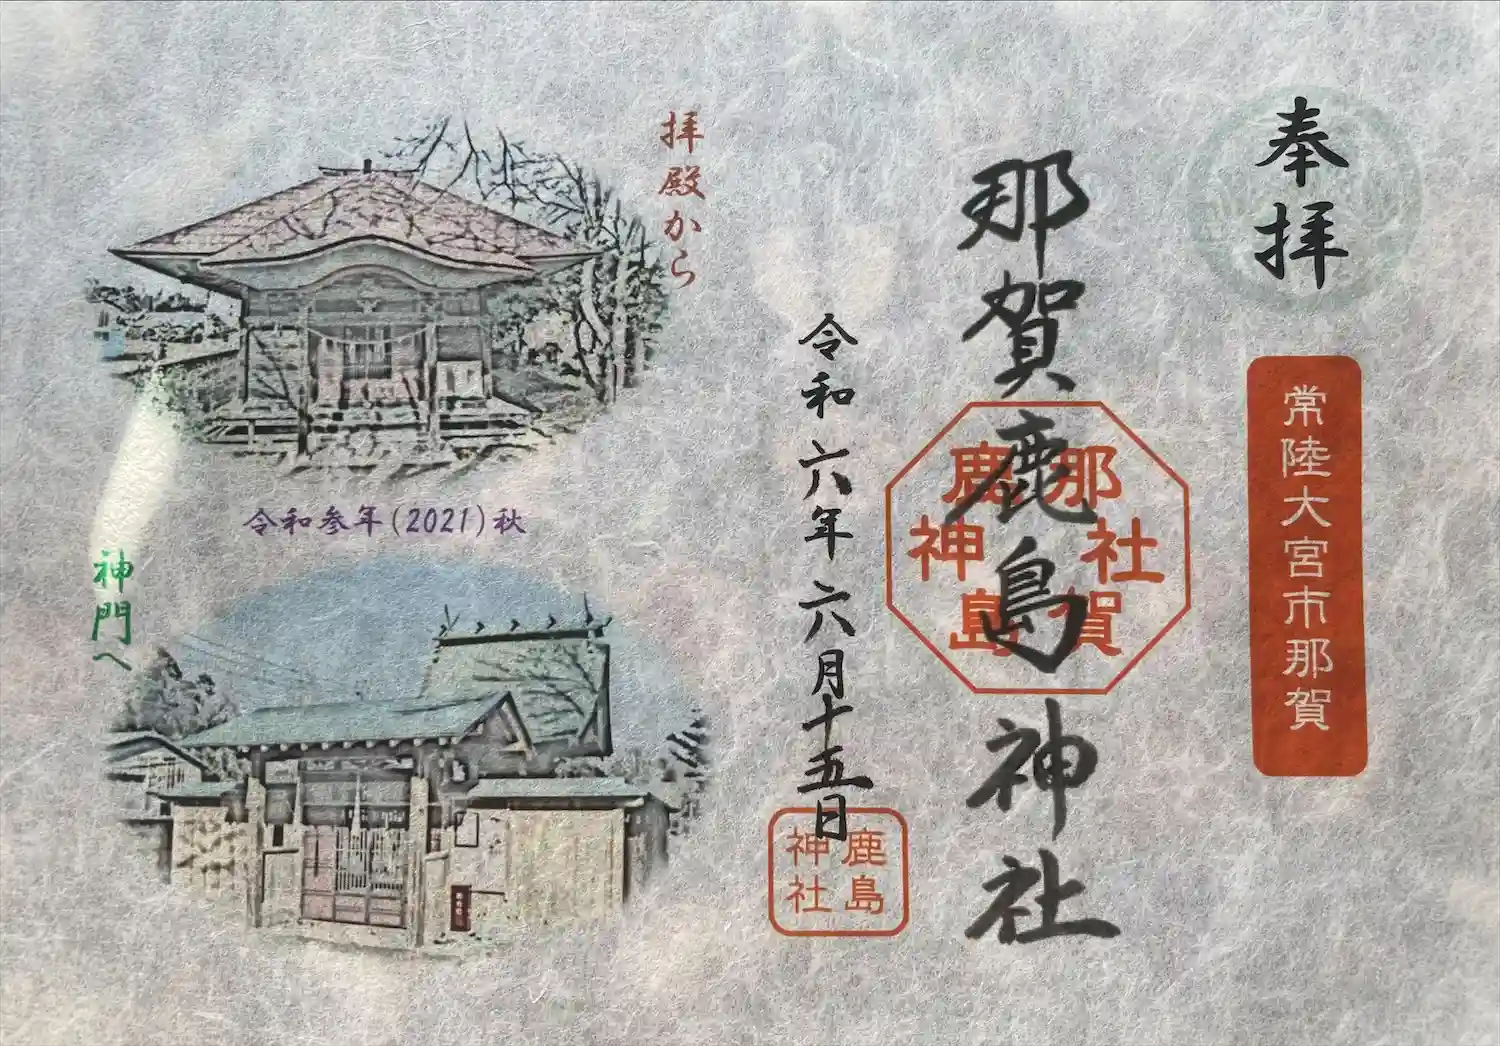 奉拝
常陸大宮市那賀
那賀鹿島神社
那賀
鹿島
神社
令和六年六月十五日
鹿島
神社
拝殿から
令和参年(2021)秋
神門へ